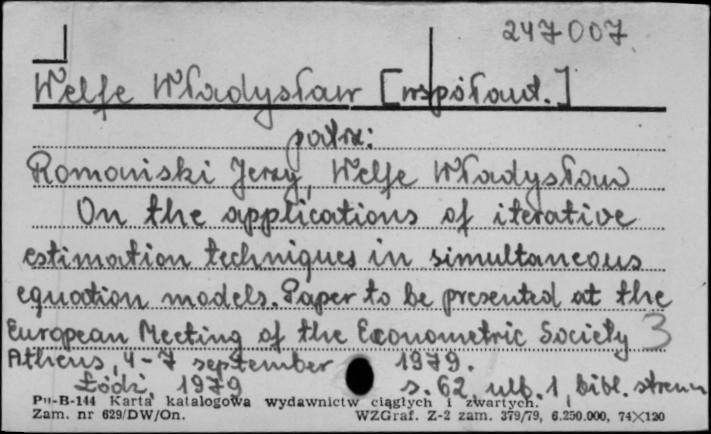 247007
Welfe Władysław [współaut.]
patrz:
Romański Jerzy, Welfe Władysław
On the applications of iterative
estimation techniques in simultaneous
equation models. Paper to be presented at the
European Meeting of the Econometric Society 3
Athens, 4-7 september 1979.
Łódź, 1979 s. 62, ulb. 1, bibl. streszcz
Pu-B-144 Karta katalogowa wydawnictw ciągłych i zwartych.
Zam. nr 629/DW/On. WZGraf. Z-2 zam. 379/79, 6.250.000, 74×120